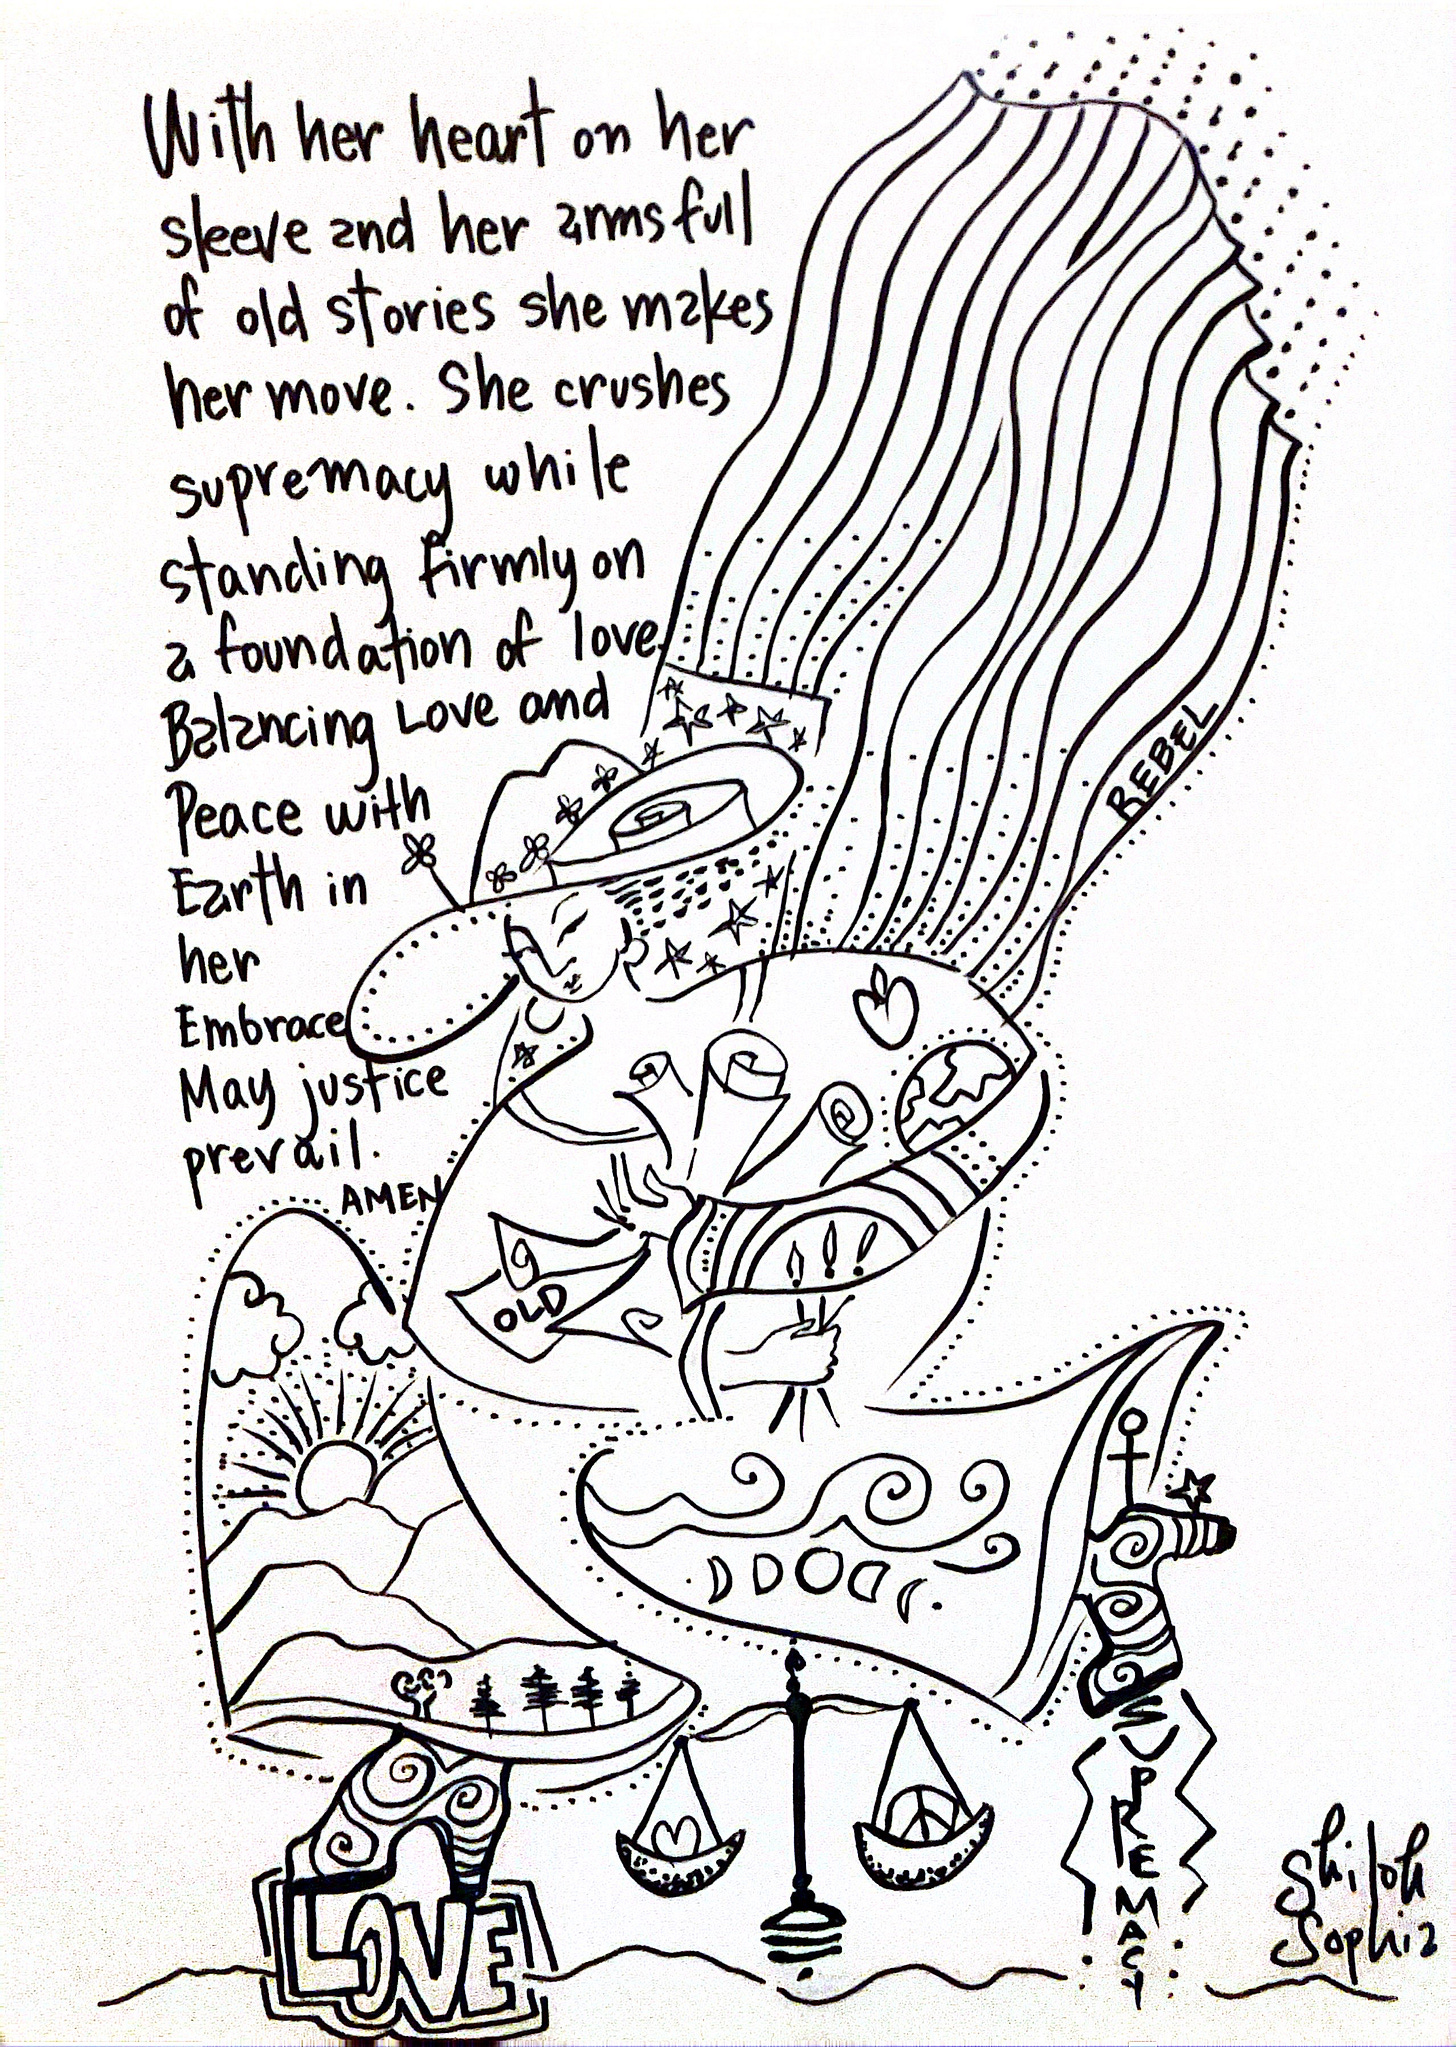 With her heart on her
sleeve and her arms full
of old stories she makes
her move. She crushes
supremacy while
standing firmly on
a foundation of love.
Balancing Love and
Peace with
Earth in
her
Embrace
May justice
prevail.
AMEN
REBEL
OLD
SUPREMACY
LOVE
Shiloh
Sophia